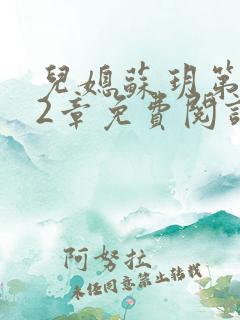 兒媳蘇玥第
2章免費閱讀
阿努拉
未經同意禁止轉載